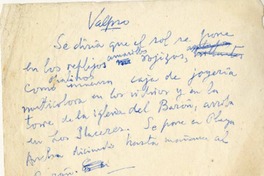 Valpso
Se diría que el sol se pone
en los reflejos amarillos rojizos,
como inmensa caja de joyería
multicolora en los vidrios y en la
torre de la iglesia del Barón, arriba
en los Placeres. Se pone en Playa
Ancha diciendo hasta mañana al
Barón.